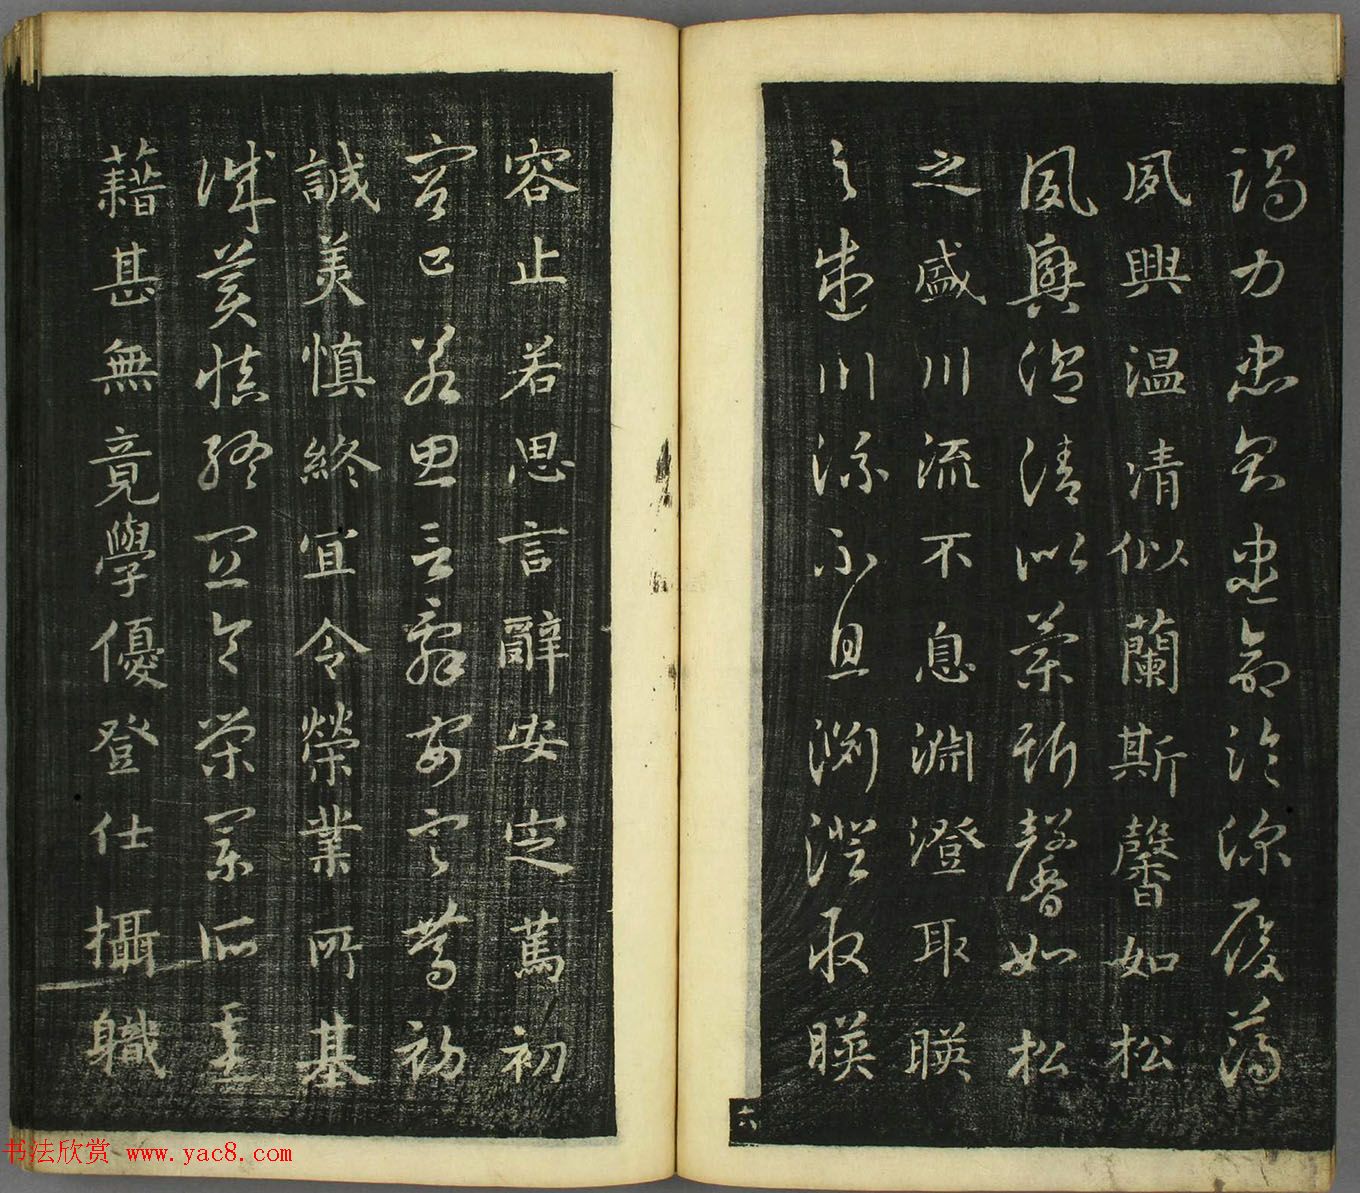 竭力忠則盡命臨深履薄
夙興温清似蘭斯馨如松
夙興温清似蘭斯馨如松
之盛川流不息淵澄取暎
之盛川流不息淵澄取暎
六
容止若思言辭安定篤初
容止若思言辭安定篤初
誠美慎終宜令榮業所基
誠美慎終宜令榮業所基
藉甚無竟學優登仕攝職
书法欣赏 www.yac8.com